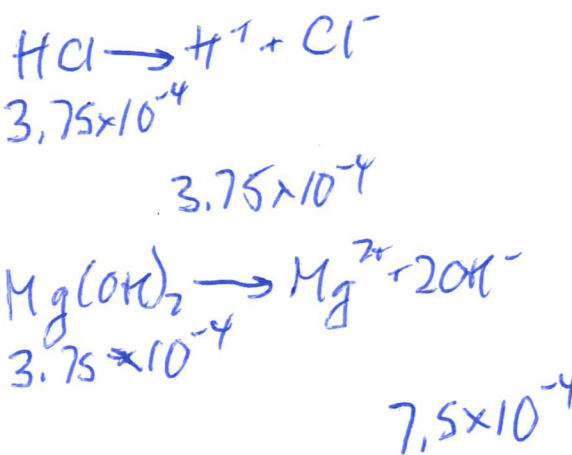 HCl → H⁺ + Cl⁻
3.75×10⁻⁴
3.75×10⁻⁴
Mg(OH)₂ → Mg²⁺ + 2OH⁻
3.75×10⁻⁴
7.5×10⁻⁴